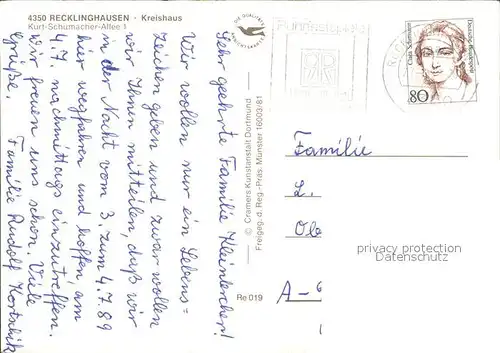 4350 RECKLINGHAUSEN - Kreishaus
Kurt-Schumacher-Allee 1
Sehr geehrte Familie Kleinlercher!
Wir wollen nur ein Lebens=
zeichen geben und zwar wollen
wir Ihnen mitteilen, daß wir
in der Nacht vom 3. zum 4.7.89
hier wegfahren und hoffen, am
4.7. nachmittags einzutreffen.
Wir freuen uns schon. Viele
Grüße.
Familie Rudolf
DIE QUALITÄTS
ANSICHTSKARTE
© Cramers Kunstanstalt Dortmund
Freigeg. d. Reg.-Präs. Münster 16003/81
Re 019
Clara Schumann
Deutsche Bundespost
80
Familie
L.
Ob
A-6
privacy protection
Datenschutz